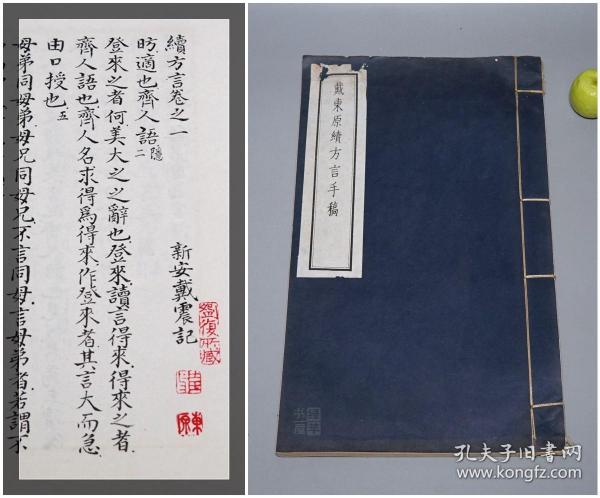 續方言卷之一
新安戴震記
昉適也齊人語隱二
登來之者何美大之之辭也登來讀言得來得來之者
齊人語也齊人名求得爲得來作登來者其言大而急
由口授也五
母弟同母弟母兄同母兄不言同母言母弟者若謂不
戴東原續方言手稿
孔夫子旧书网
www.kongfz.com